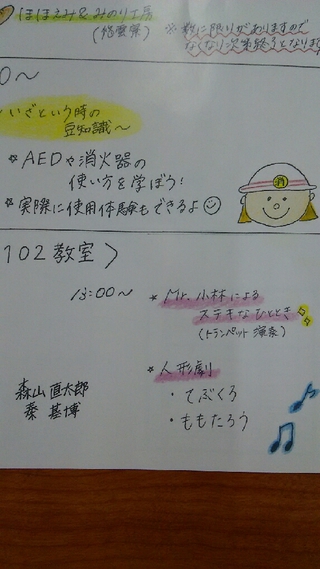 ほほえみ&みのり工房
※ 数に限りがありますので
なくなり次第終了となります
0〜
いざという時の
豆知識〜
☆AEDや消火器の
使い方を学ぼう!
☆実際に使用体験もできるよ☺
消
102教室〉
13:00〜
★Mr.小林による
ステキなひととき
(トランペット演奏)
★人形劇
・てぶくろ
・ももたろう
森山直太郎
秦 基博